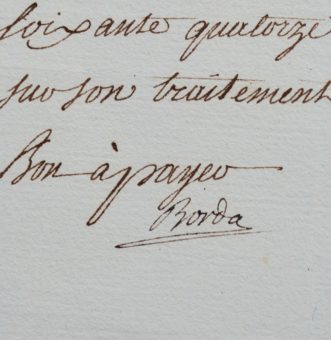 soixante quatorze
sur son traitement
Bon à payer
Borda